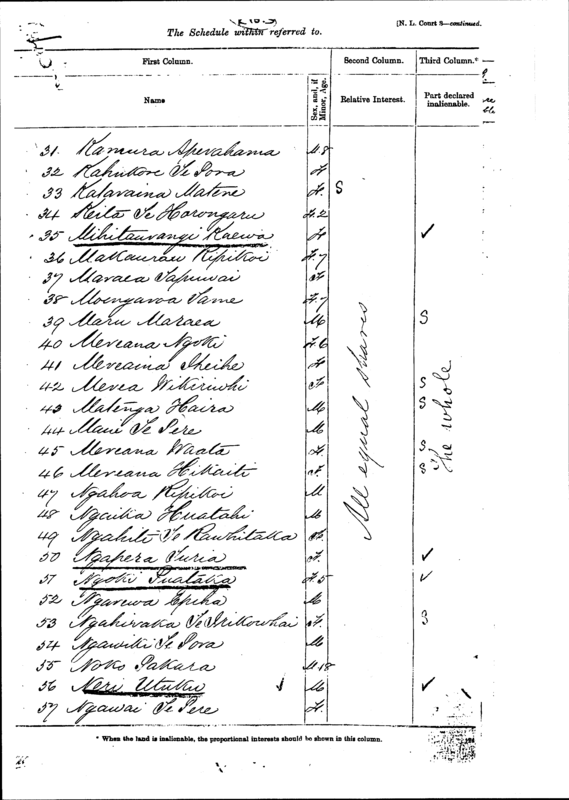 [N. L. Court 8—continued.
The Schedule within referred to.
First Column. Second Column. Third Column.*
Name Sex, and, if Minor, Age. Relative Interest. Part declared inalienable.
31. Kamura Aperahama M. 8
32 Kahukore Te Pora F
33 Kataraina Matene F. S
34 Keita Te Horongaru F. 2
35 Mihitaurangi Kaewa F ✓
36 Makaurau Ripikoi F. 7
37 Maraea Tapuwai F
38 Moengaroa Tame F. 7
39 Maru Maraea M S
40 Mereana Ngoki F. 6
41 Mereaina Iheihe F
42 Merea Wikiriwhi F S
43 Matenga Haira M S
44 Maui Te Pere M
45 Mereana Waata F. S
46 Mereana Hikaiti F. S
47 Ngahoa Ripikoi M
48 Ngaika Huatahi M
49 Ngahiti Te Rawhitaka F.
50 Ngapera Turia F. ✓
51 Ngoki Tuataka F. 5 ✓
52 Ngarewa Epiha M
53 Ngahiraka Te Irikowhai F. S
54 Ngawiki Te Pora M
55 Noko Pakara M. 18
56 Neri Utuku M ✓
57 Ngawai Te Pere F.
All equal shares
The whole
* When the land is inalienable, the proportional interests should be shown in this column.